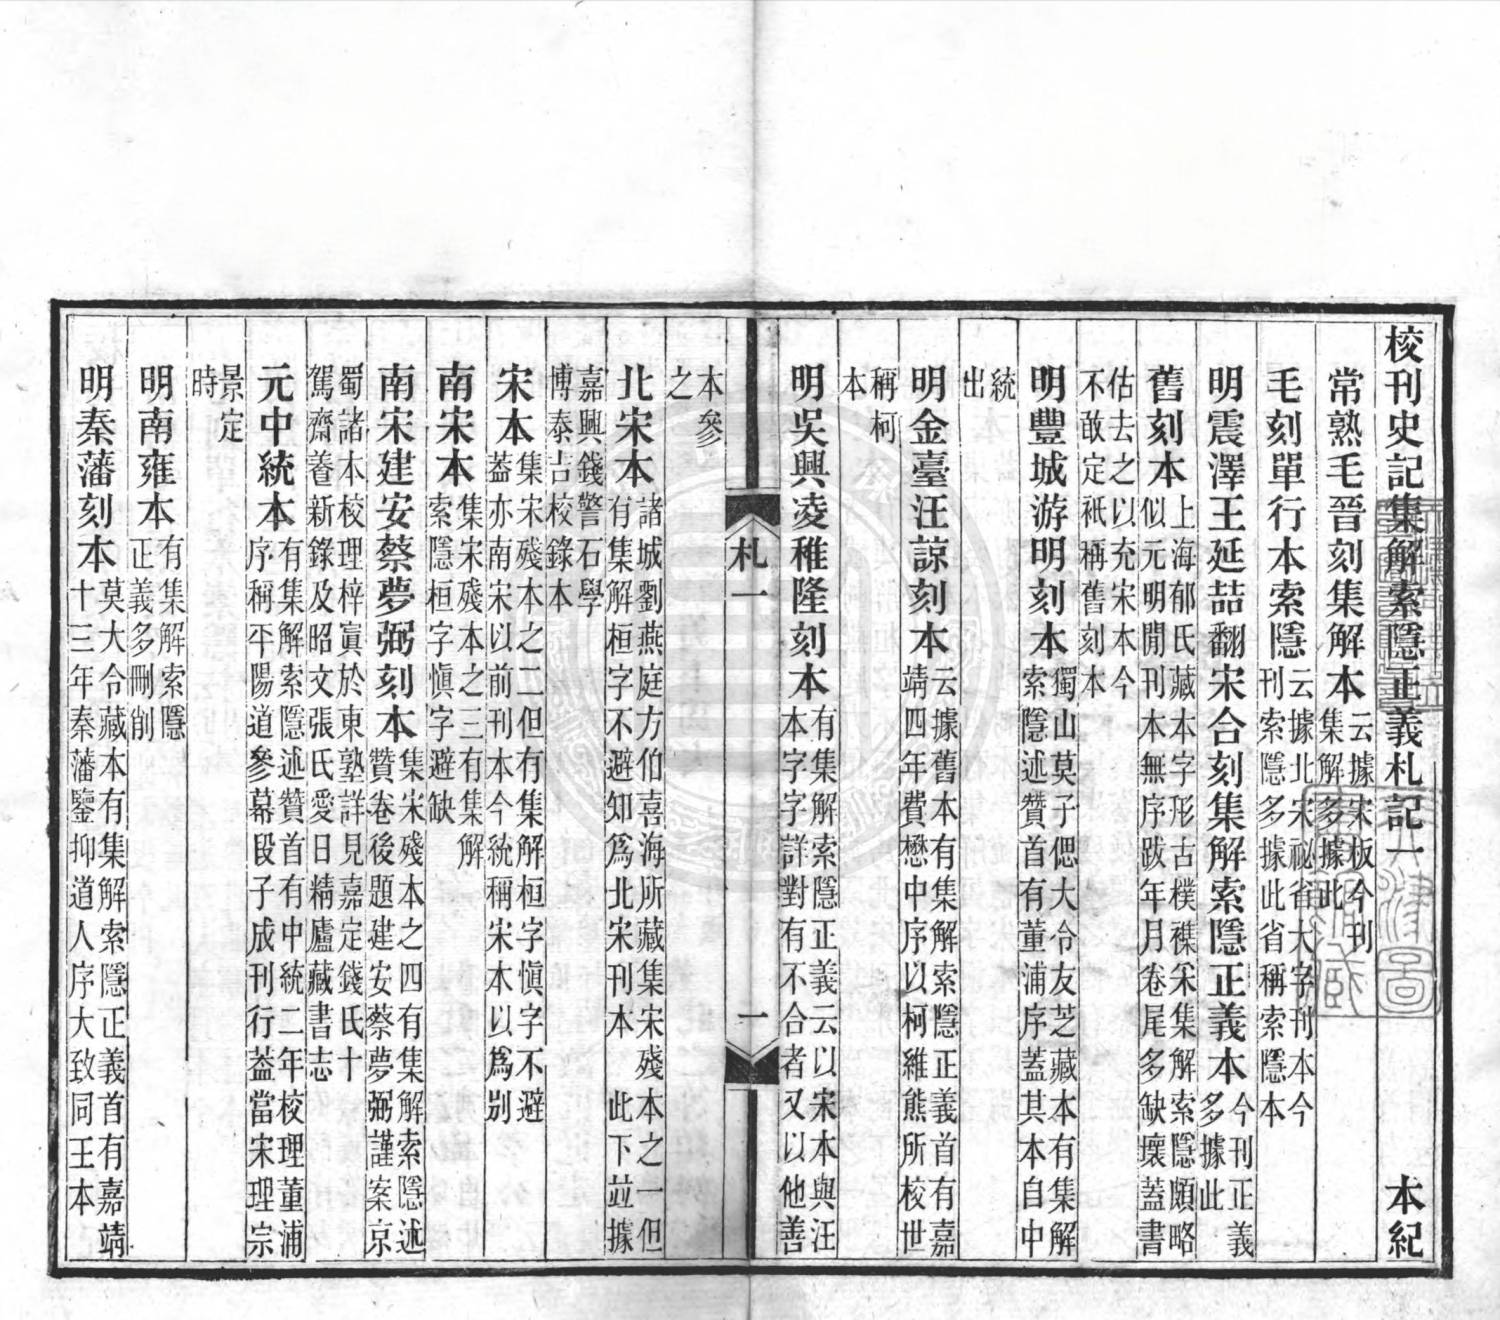 校刊史記集解索隱正義札記一 本紀
常熟毛晉刻集解本 云據宋板今刊
集解多據此
毛刻單行本索隱 云據北宋祕省大字刊本今
刊索隱多據此省稱索隱本
明震澤王延喆翻宋合刻集解索隱正義本 今刊正義
多據此
舊刻本 上海郁氏藏本字形古樸襍采集解索隱頗略
似元明閒刊本無序跋年月卷尾多缺壞蓋書
估去之以充宋本今
不敢定祇稱舊刻本
明豐城游明刻本 獨山莫子偲大令友芝藏本有集解
索隱述贊首有董浦序蓋其本自中
統
出
明金臺汪諒刻本 云據舊本有集解索隱正義首有嘉
靖四年費懋中序以柯維熊所校世
稱柯
本
明吳興凌稚隆刻本 有集解索隱正義云以宋本與汪
本字字詳對有不合者又以他善
札一 一
本參
之
北宋本 諸城劉燕庭方伯喜海所藏集宋殘本之一但
有集解桓字不避知爲北宋刊本 此下竝據
嘉興錢警石學
博泰吉校錄本
宋本 集宋殘本之二但有集解桓字愼字不避
葢亦南宋以前刊本今統稱宋本以爲別
南宋本 集宋殘本之三有集解
索隱桓字愼字避缺
南宋建安蔡夢弼刻本 集宋殘本之四有集解索隱述
贊卷後題建安蔡夢弼謹案京
蜀諸本校理梓寘於東塾詳見嘉定錢氏十
駕齋養新錄及昭文張氏愛日精廬藏書志
元中統本 有集解索隱述贊首有中統二年校理董浦
序稱平陽道參幕段子成刊行葢當宋理宗
景定
時
明南雍本 有集解索隱
正義多刪削
明秦藩刻本 莫大令藏本有集解索隱正義首有嘉靖
十三年秦藩鑒抑道人序大致同王本